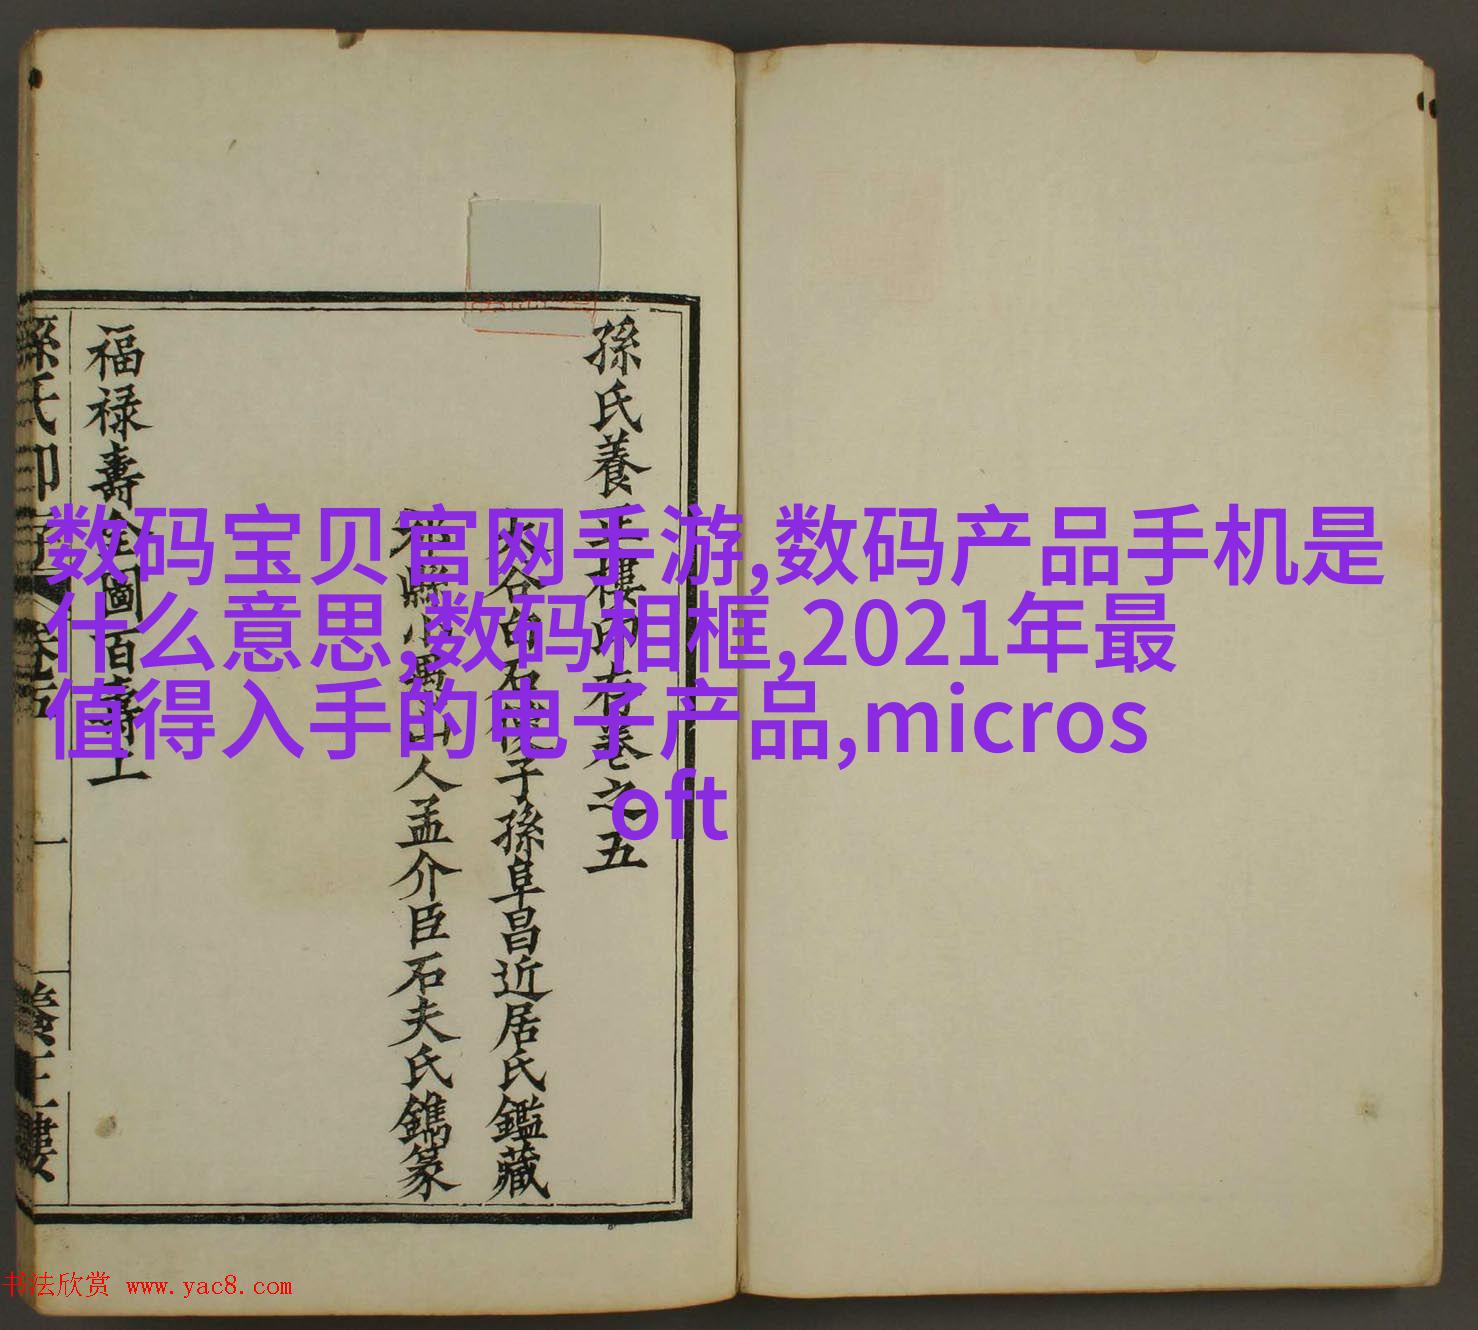 孫氏養正樓印存卷之五
太谷台石陵子孫阜昌近居氏鑑藏
人孟介臣石夫氏鐫篆
福祿壽全圖百壽上
数码宝贝官网手游,数码产品手机是
什么意思,数码相框,2021年最
值得入手的电子产品,micros
oft
书法欣赏 www.yac8.com